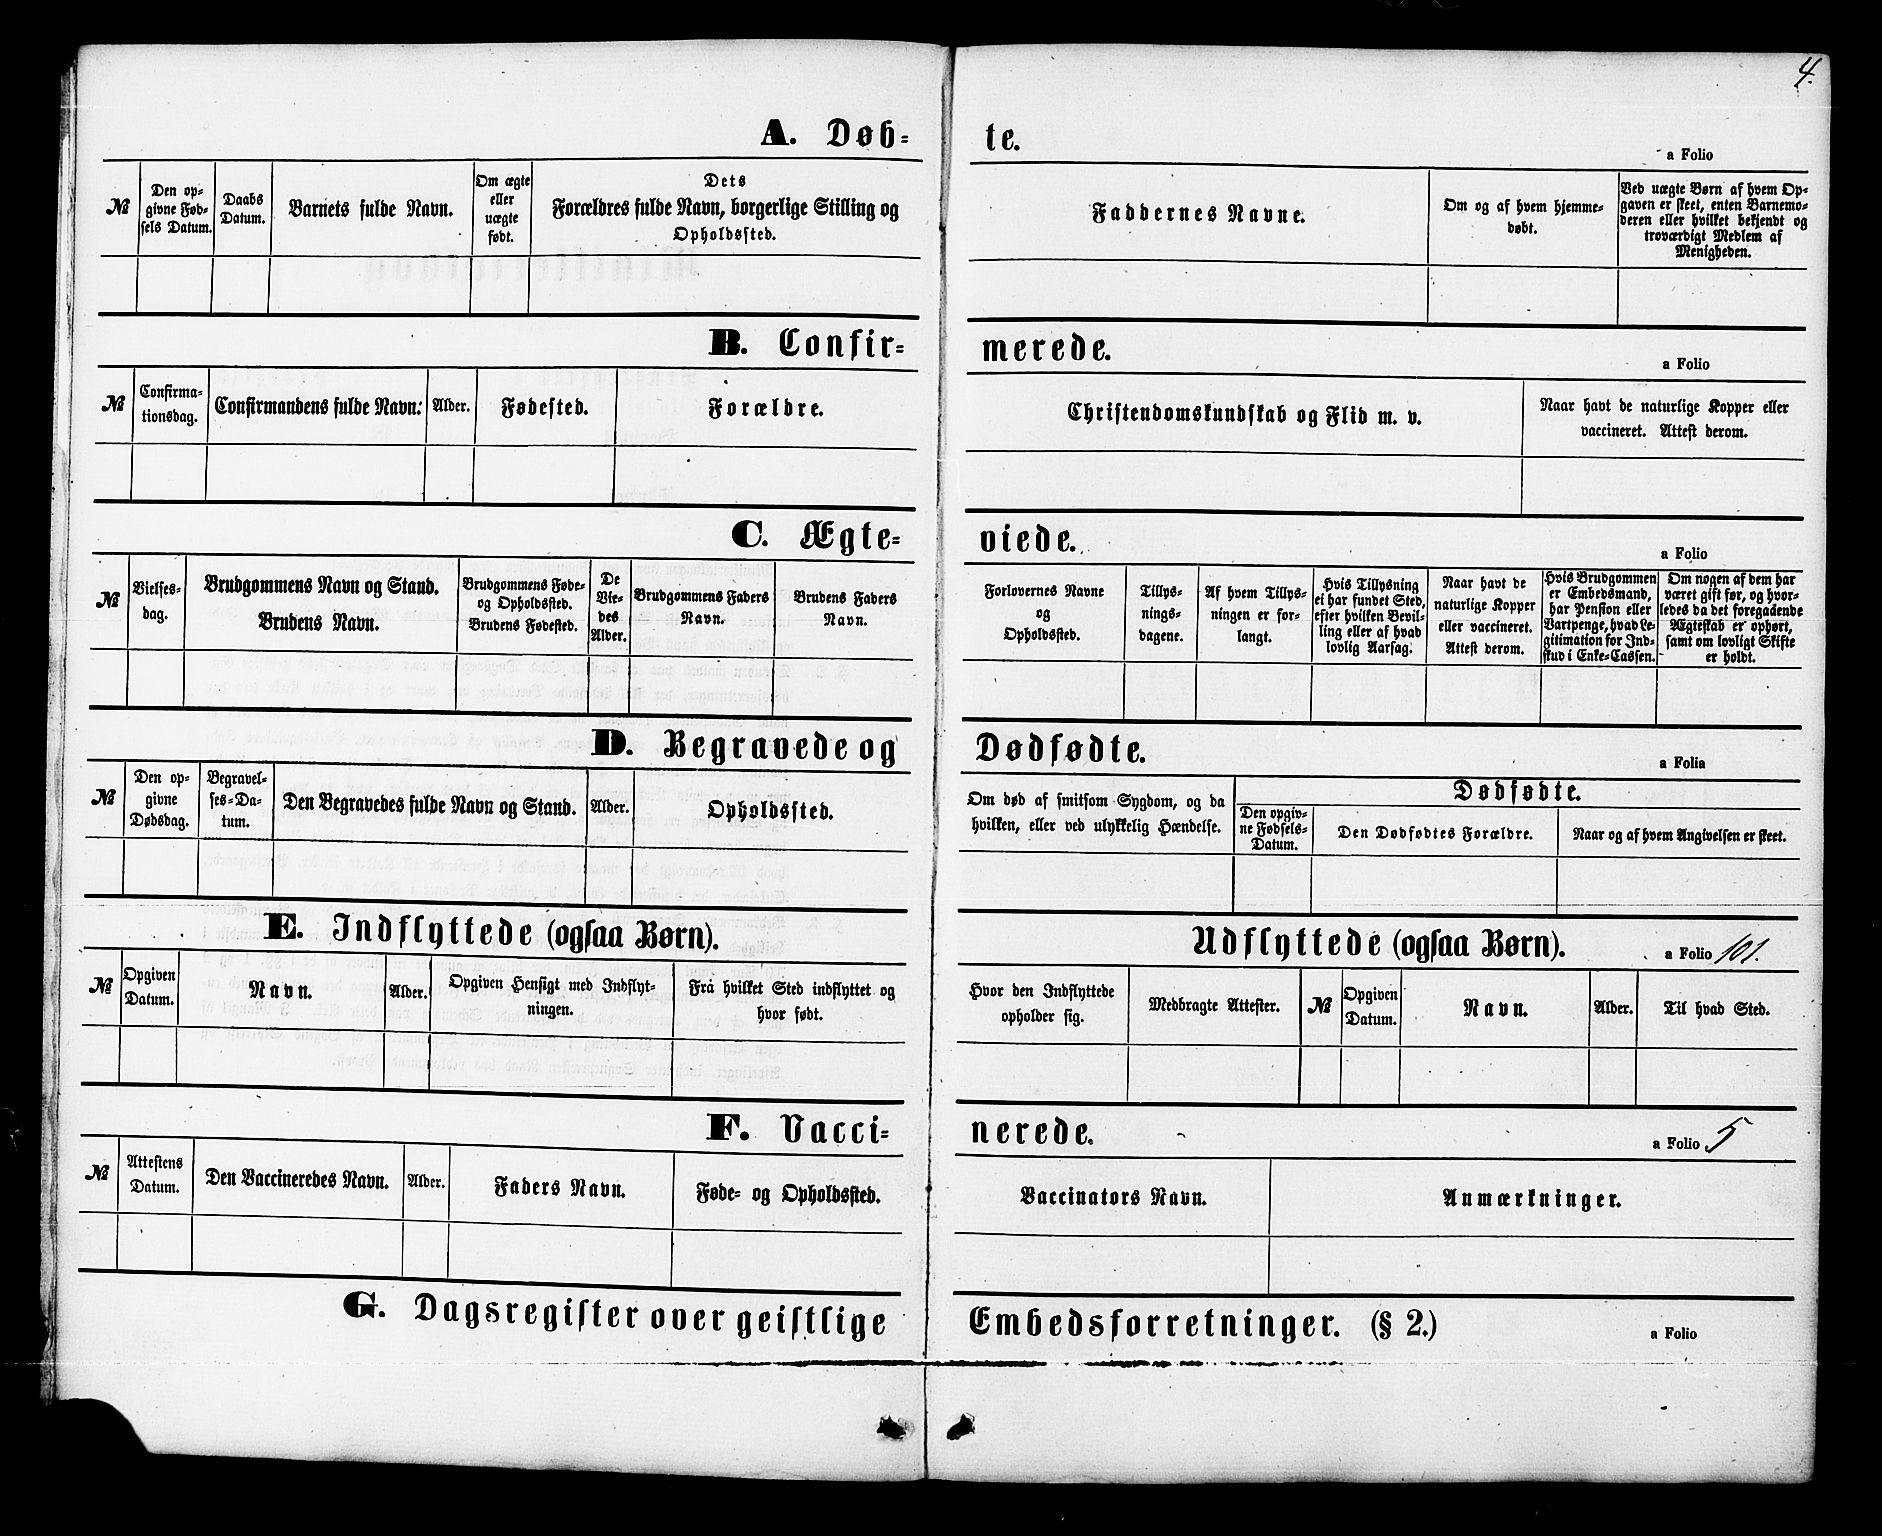 4.
A. Døb-
te.
a Folio
№
Den op-
givne Fød-
sels Datum.
Daabs
Datum.
Barnets fulde Navn.
Om ægte
eller
uægte
født.
Dets
Forældres fulde Navn, borgerlige Stilling og
Opholdssted.
Faddernes Navne.
Om og af hvem hjemme-
døbt.
Ved uægte Børn af hvem Op-
gaven er skeet, enten Barnemo-
deren eller hvilket bekjendt og
troværdigt Medlem af
Menigheden.
B. Confir-
merede.
a Folio
№
Confirma-
tionsdag.
Confirmandens fulde Navn.
Alder.
Fødested.
Forældre.
Christendomskundskab og Flid m. v.
Naar havt de naturlige Kopper eller
vaccineret. Attest derom.
C. Ægte-
viede.
a Folio
№
Vielses-
dag.
Brudgommens Navn og Stand.
Brudens Navn.
Brudgommens Føde-
og Opholdssted.
Brudens Fødested.
De
Vie-
des
Alder.
Brudgommens Faders
Navn.
Brudens Faders
Navn.
Forlovernes Navne
og
Opholdssted.
Tillys-
nings-
dagene.
Af hvem Tillys-
ningen er for-
langt.
Hvis Tillysning
ei har fundet Sted,
efter hvilken Bevil-
ling eller af hvad
lovlig Aarsag.
Naar havt de
naturlige Kopper
eller vaccineret.
Attest derom.
Hvis Brudgommen
er Embedsmand,
har Pension eller
Vartpenge, hvad Le-
gitimation for Ind-
skud i Enke-Cassen.
Om nogen af dem har
været gift før, og hvor-
ledes da det foregaaende
Ægteskab er ophørt,
samt om lovligt Skifte
er holdt.
D. Begravede og
Dødfødte.
a Folia
№
Den op-
givne
Dødsdag.
Begravel-
ses-Da-
tum.
Den Begravedes fulde Navn og Stand.
Alder.
Opholdssted.
Om død af smitsom Sygdom, og da
hvilken, eller ved ulykkelig Hændelse.
Dødfødte.
Den opgiv-
ne Fødsels-
Datum.
Den Dødfødtes Forældre.
Naar og af hvem Angivelsen er skeet.
E. Indflyttede (ogsaa Børn).
Udflyttede (ogsaa Børn).
a Folio 101.
№
Opgiven
Datum.
Navn.
Alder.
Opgiven Hensigt med Indflyt-
ningen.
Fra hvilket Sted indflyttet og
hvor født.
Hvor den Indflyttede
opholder sig.
Medbragte Attester.
№
Opgiven
Datum.
Navn.
Alder.
Til hvad Sted.
F. Vacci-
nerede.
a Folio 5
№
Attestens
Datum.
Den Vaccineredes Navn.
Alder.
Faders Navn.
Føde- og Opholdssted.
Vaccinators Navn.
Anmærkninger.
G. Dagsregister over geistlige
Embedsforretninger. (§ 2.)
a Folio